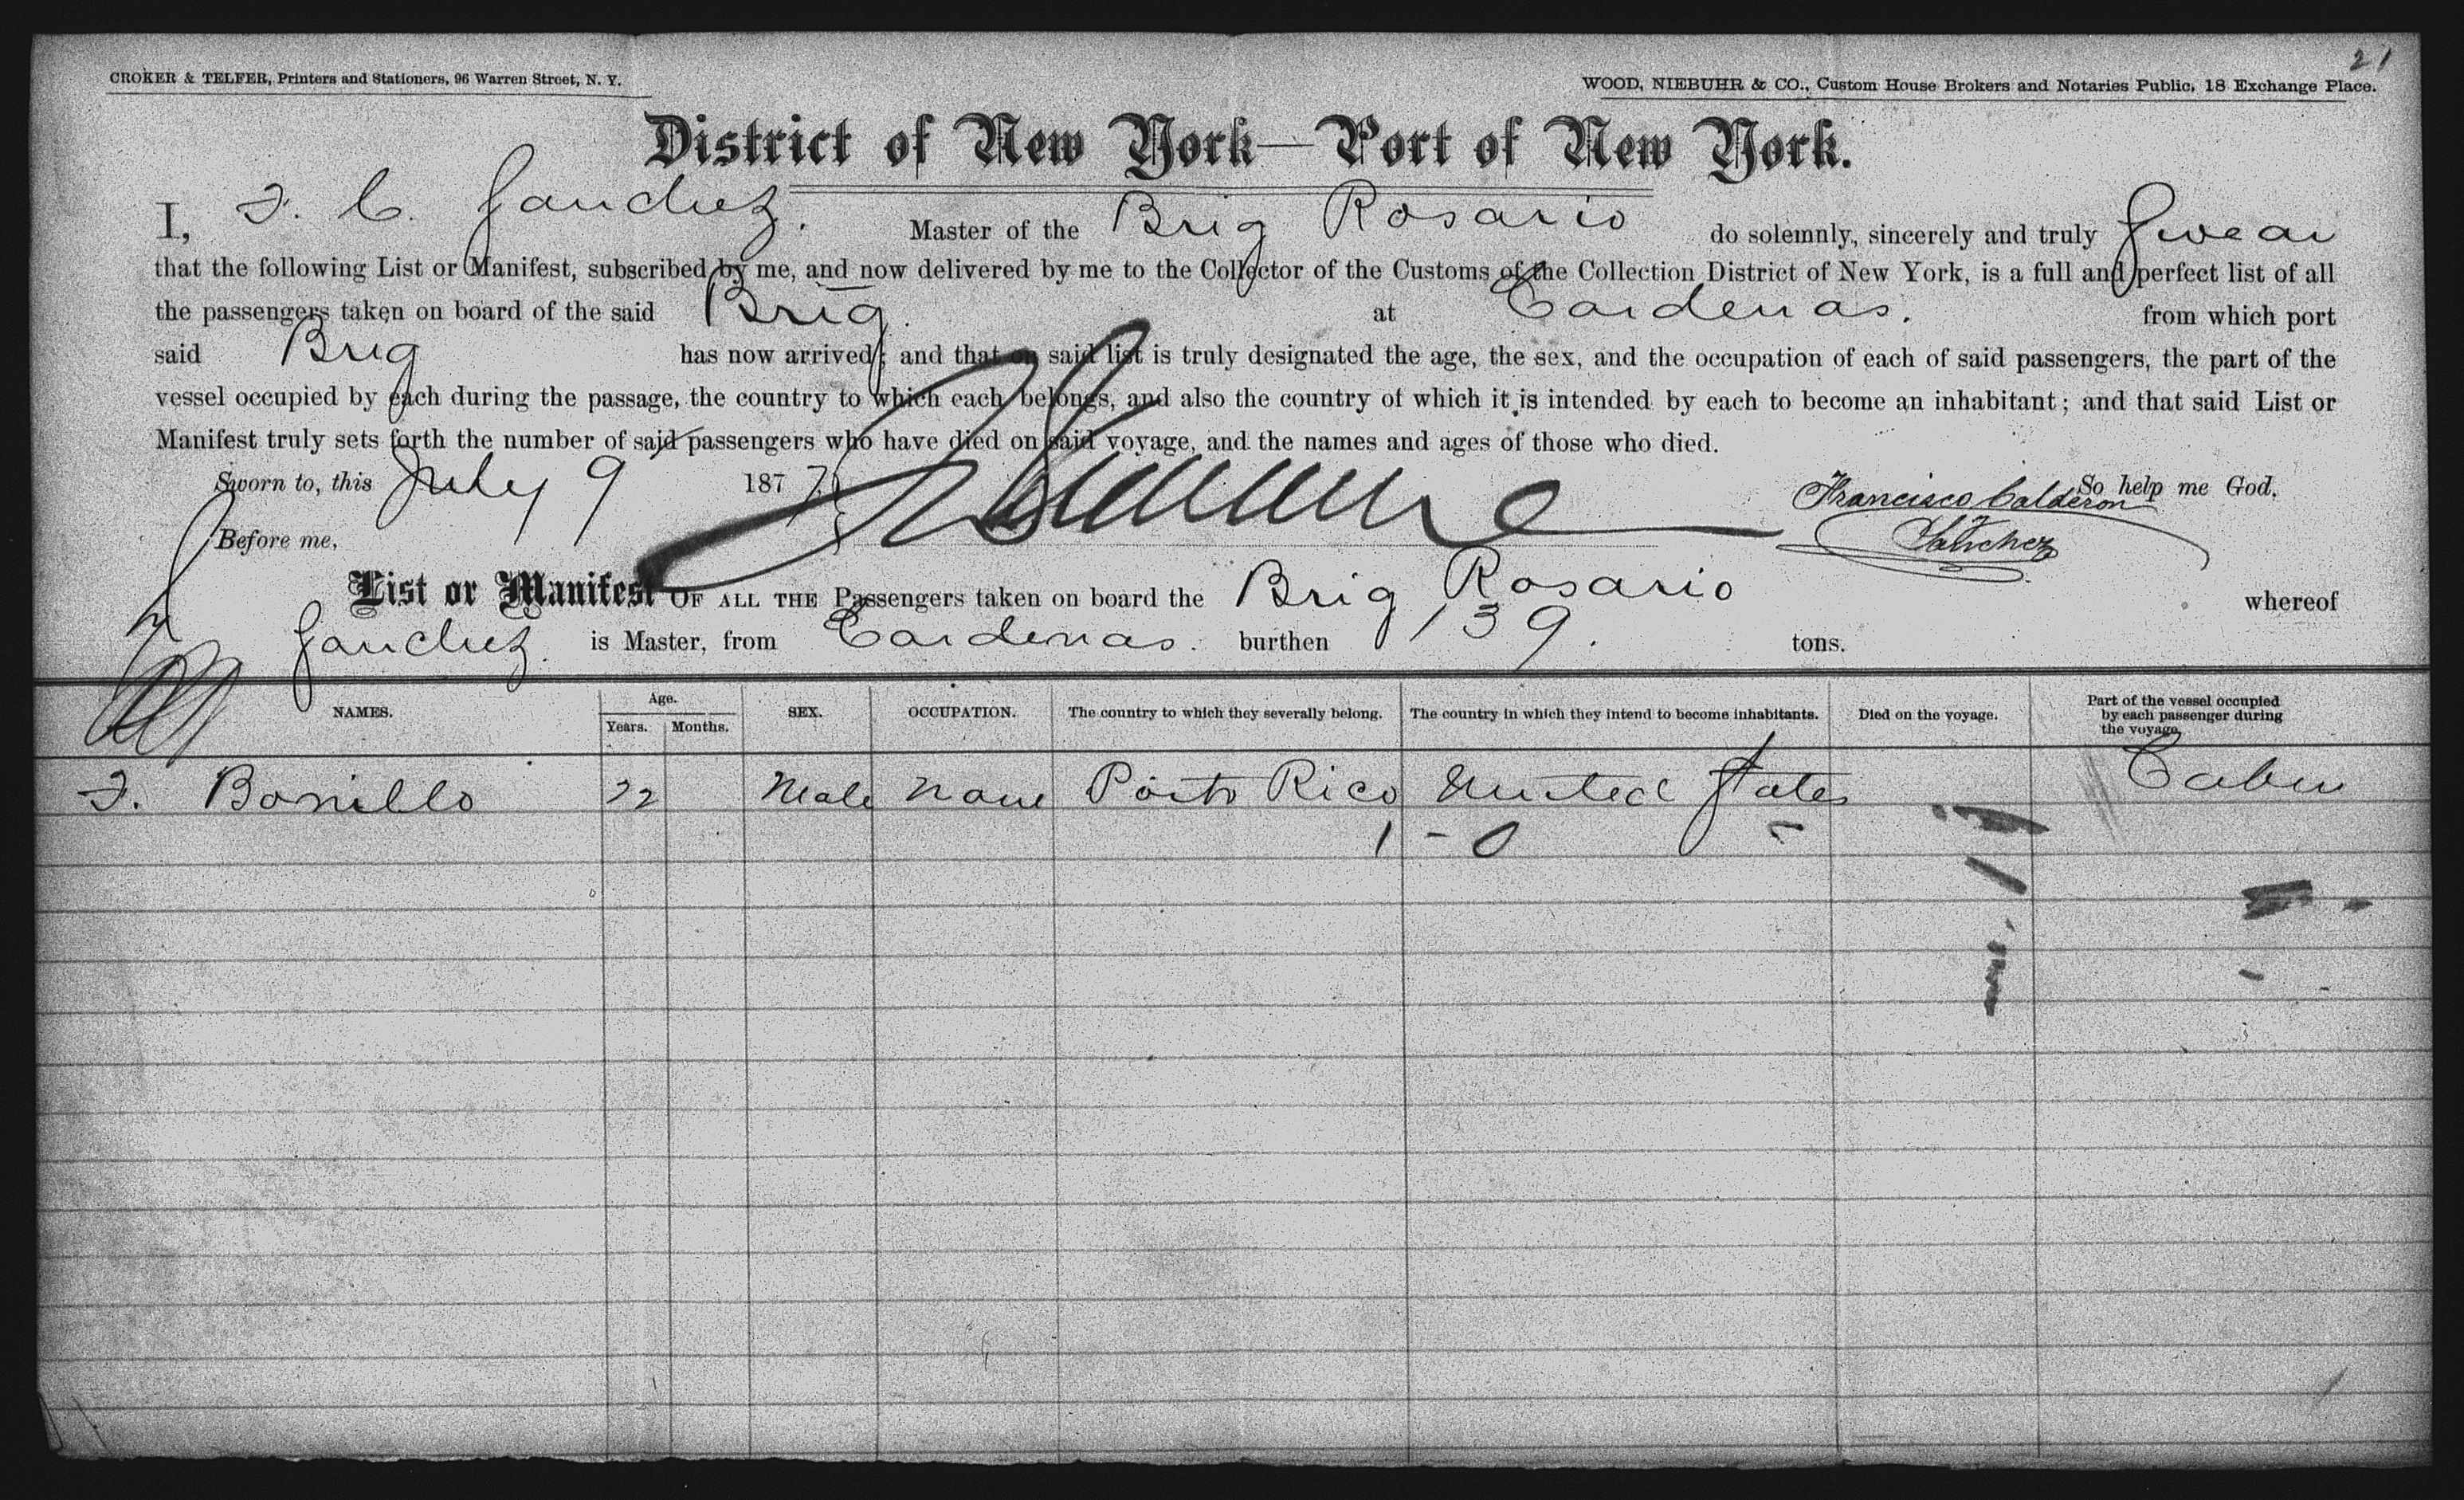 21
CROKER & TELFER, Printers and Stationers, 96 Warren Street, N. Y.
WOOD, NIEBUHR & CO., Custom House Brokers and Notaries Public, 18 Exchange Place.
District of New York—Port of New York.
I, F. C. Sanchez. Master of the Brig Rosario do solemnly, sincerely and truly Swear
that the following List or Manifest, subscribed by me, and now delivered by me to the Collector of the Customs of the Collection District of New York, is a full and perfect list of all
the passengers taken on board of the said Brig. at Cardenas. from which port
said Brig has now arrived; and that on said list is truly designated the age, the sex, and the occupation of each of said passengers, the part of the
vessel occupied by each during the passage, the country to which each belongs, and also the country of which it is intended by each to become an inhabitant; and that said List or
Manifest truly sets forth the number of said passengers who have died on said voyage, and the names and ages of those who died.
Sworn to, this July 9 1877. So help me God.
Francisco Calderon
Before me, Sanchez
List or Manifest OF ALL THE Passengers taken on board the Brig Rosario whereof
Sanchez. is Master, from Cardenas. burthen 139. tons.
NAMES. Age. Years. Months. SEX. OCCUPATION. The country to which they severally belong. The country in which they intend to become inhabitants. Died on the voyage. Part of the vessel occupied by each passenger during the voyage.
F. Bonillo 22 Male None Porto Rico United States Cabin
1 - 0 -